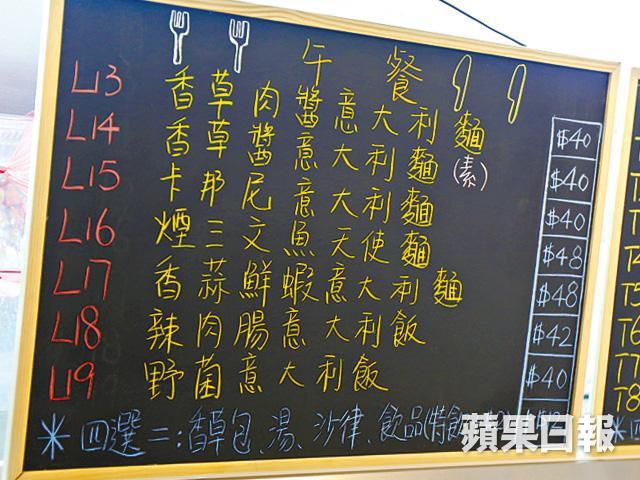 午餐
L13 香草肉醬意大利麵 $40
L14 香草醬意大利麵(素) $40
L15 卡邦尼意大利麵 $40
L16 煙三文魚天使麵 $48
L17 香蒜鮮蝦意大利麵 $48
L18 辣肉腸意大利飯 $42
L19 野菌意大利飯 $40
*四選二:香草包、湯、沙律、飲品(特飲
T4
T5
T6
T7
T8
*四
蘋果日報